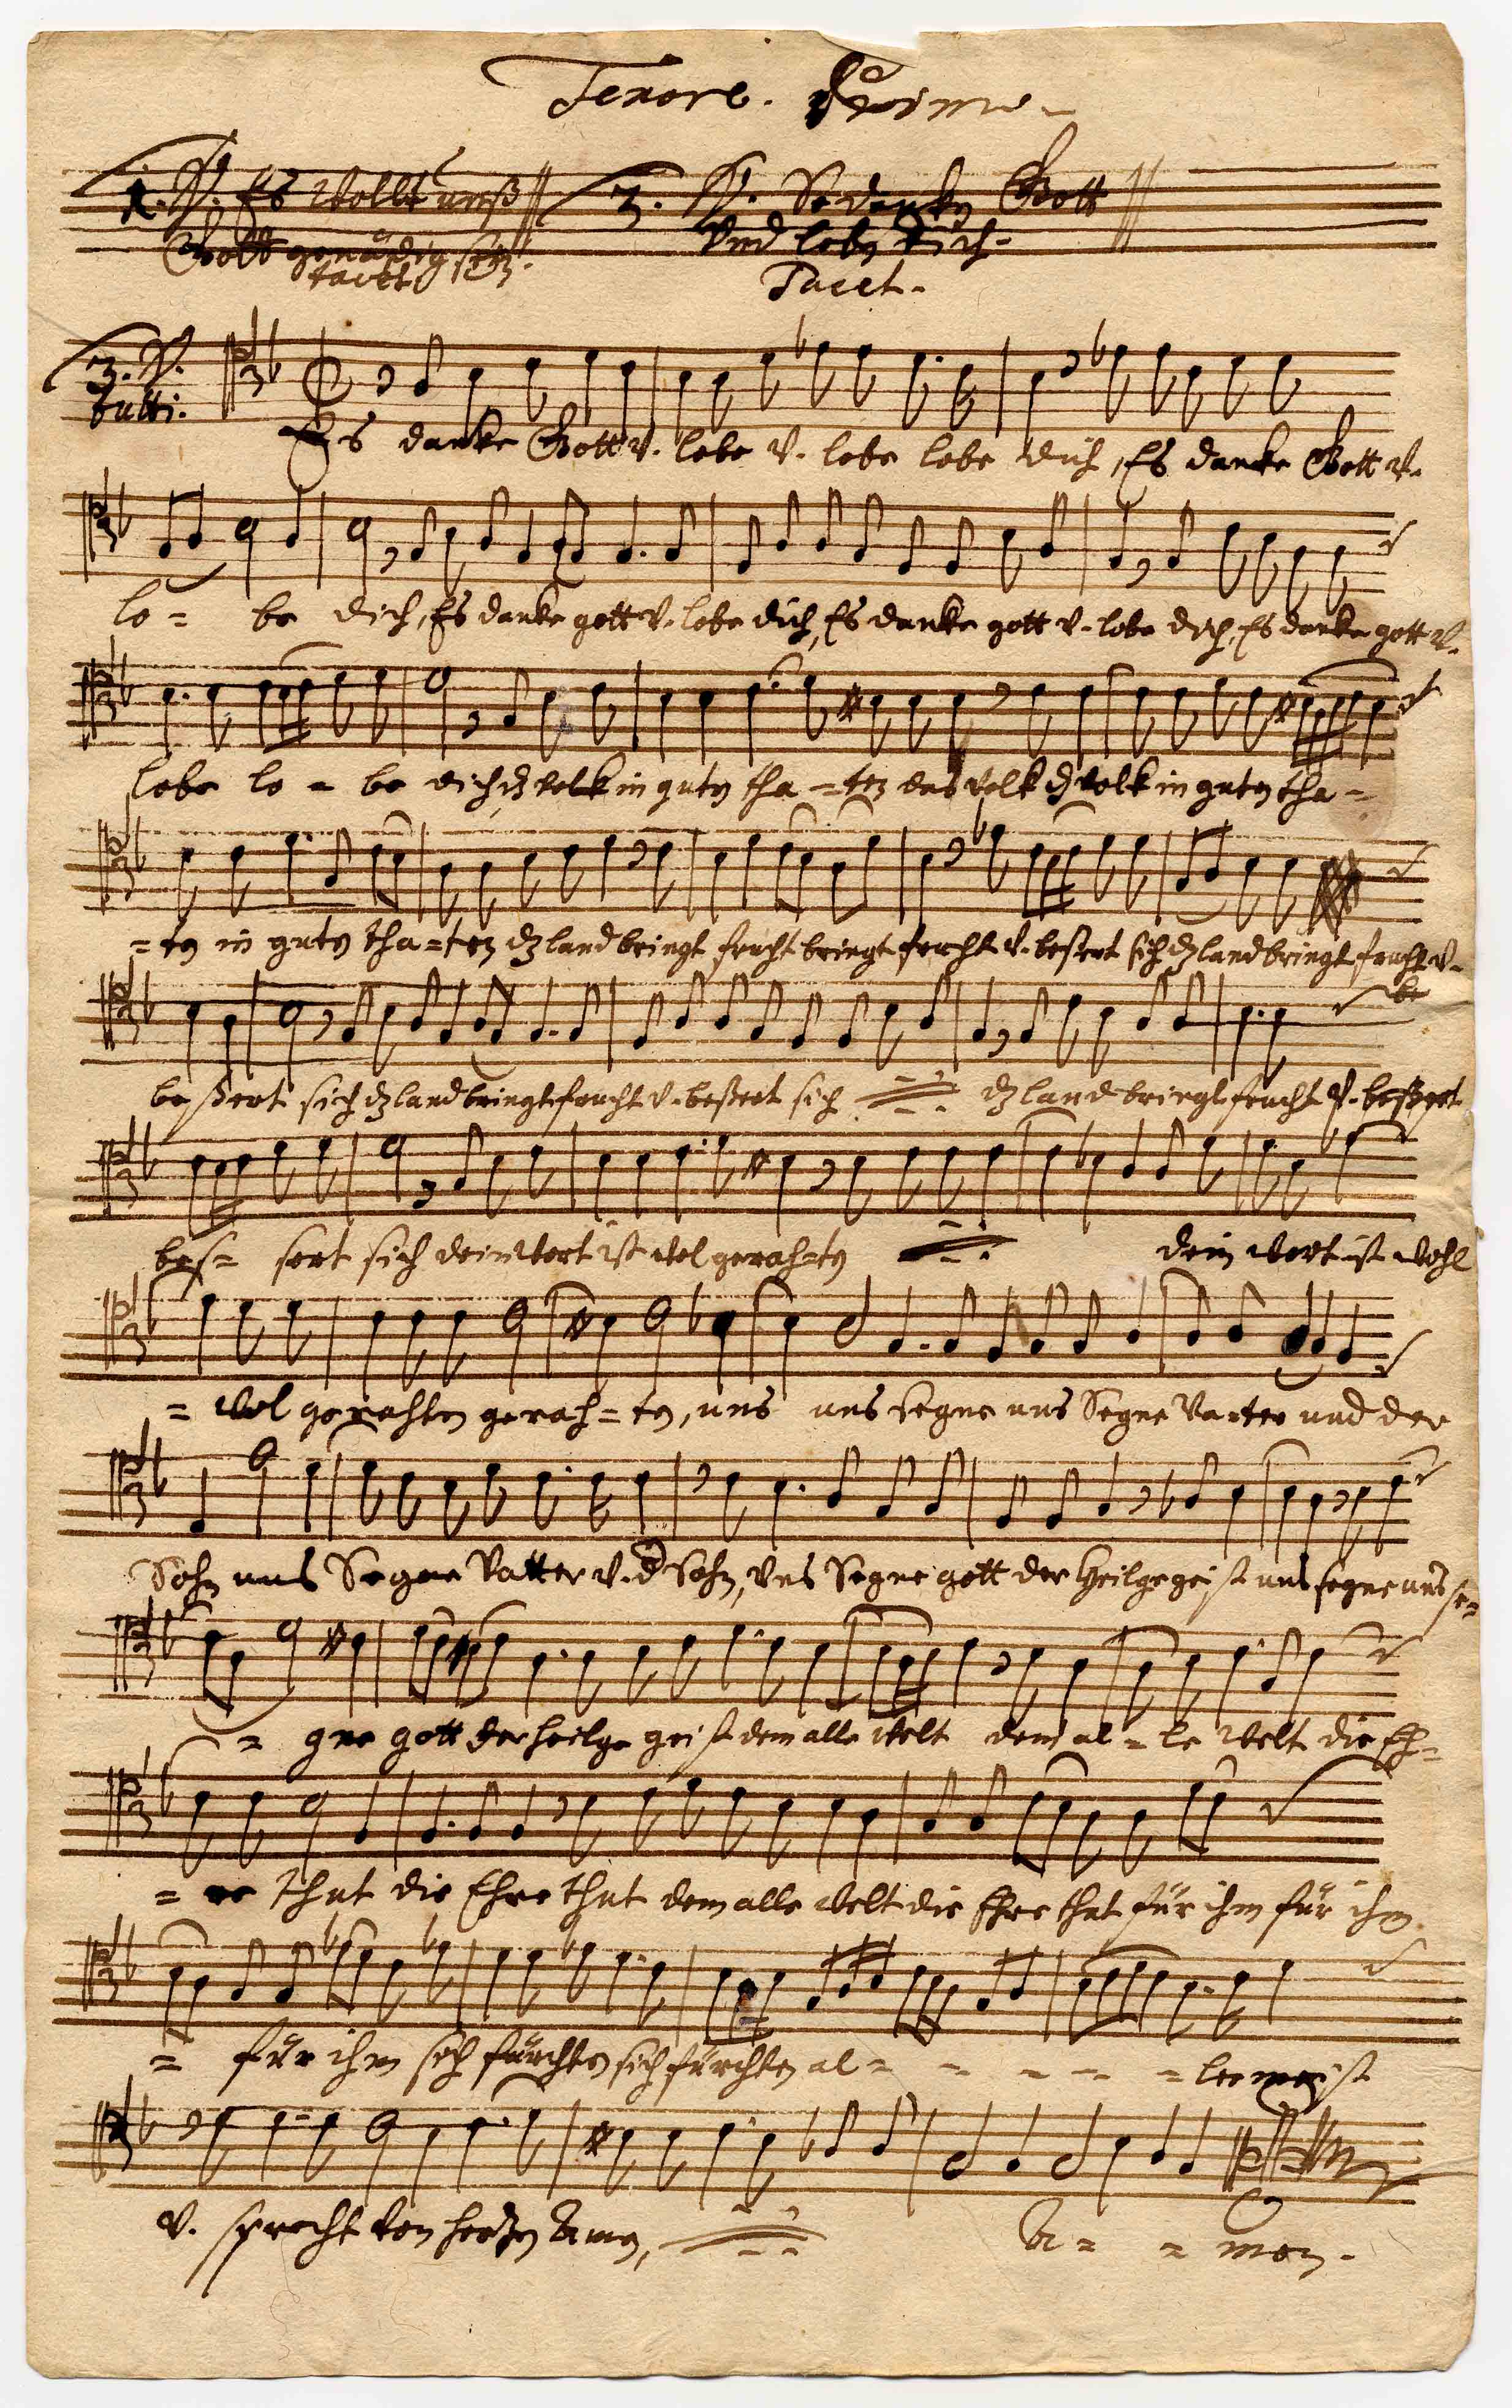 Tenore. Primo
1. V. Es Wollt unß 3. V. So danken Gott
Gott genädig sein. Vnd loben dich.
tacet Tacet.
3. V.
tutti.
Es danke Gott v. lobe v. lobe lobe dich, Es danke Gott v.
lo = be dich, Es danke gott v. lobe dich, Es danke gott v. lobe dich, Es danke gott v.
lobe lo = be dich dz volk in guten tha = ten das volk dz volk in guten tha =
= ten in guten tha = ten dz land bringt frucht bringt frucht v. beßert sich dz land bringt frucht v.
be
beßert sich dz land bringt frucht v. beßert sich dz land bringt frucht v. beßert
bes = sert sich dein wort ist wol gerah = ten dein wort ist wohl
= wol gerahten gerah = ten, uns uns segne uns Segne Va = ter und der
Sohn uns Segne Vatter v. d Sohn, Vns Segne gott der Heilge geist uns segne uns se =
= gne gott der heilge geist dem alle welt dem al = le Welt die Eh =
= re thut die Ehre thut dem alle welt die Ehre thut für ihm für ihm
= für ihm sich fürchten sich fürchten al = = = = = lermeist
v. sprecht von hertzen Amen, A = = men.